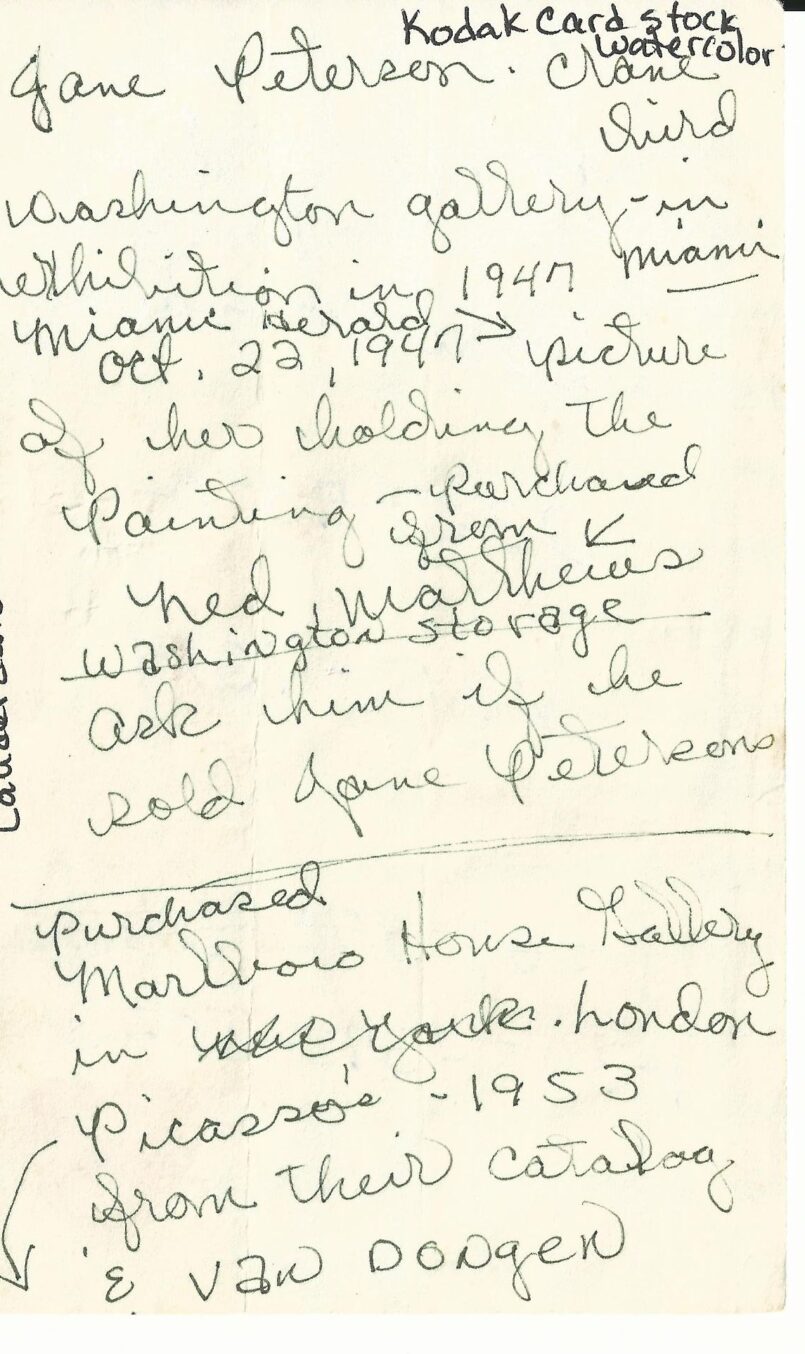 Kodak Card Stock
Watercolor
Jane Peterson. Crane
third
Washington gallery - in
exhibition in 1947 Miami
Miami Herald →
Oct. 22, 1947 picture
of her holding the
Painting - Purchased
from ↙
Ned Matthews
Washington Storage
ask him if he
sold Jane Petersons
purchased
Marlboro House Gallery
in New York. London
Picasso's - 1953
from their catalog
& Van Dongen